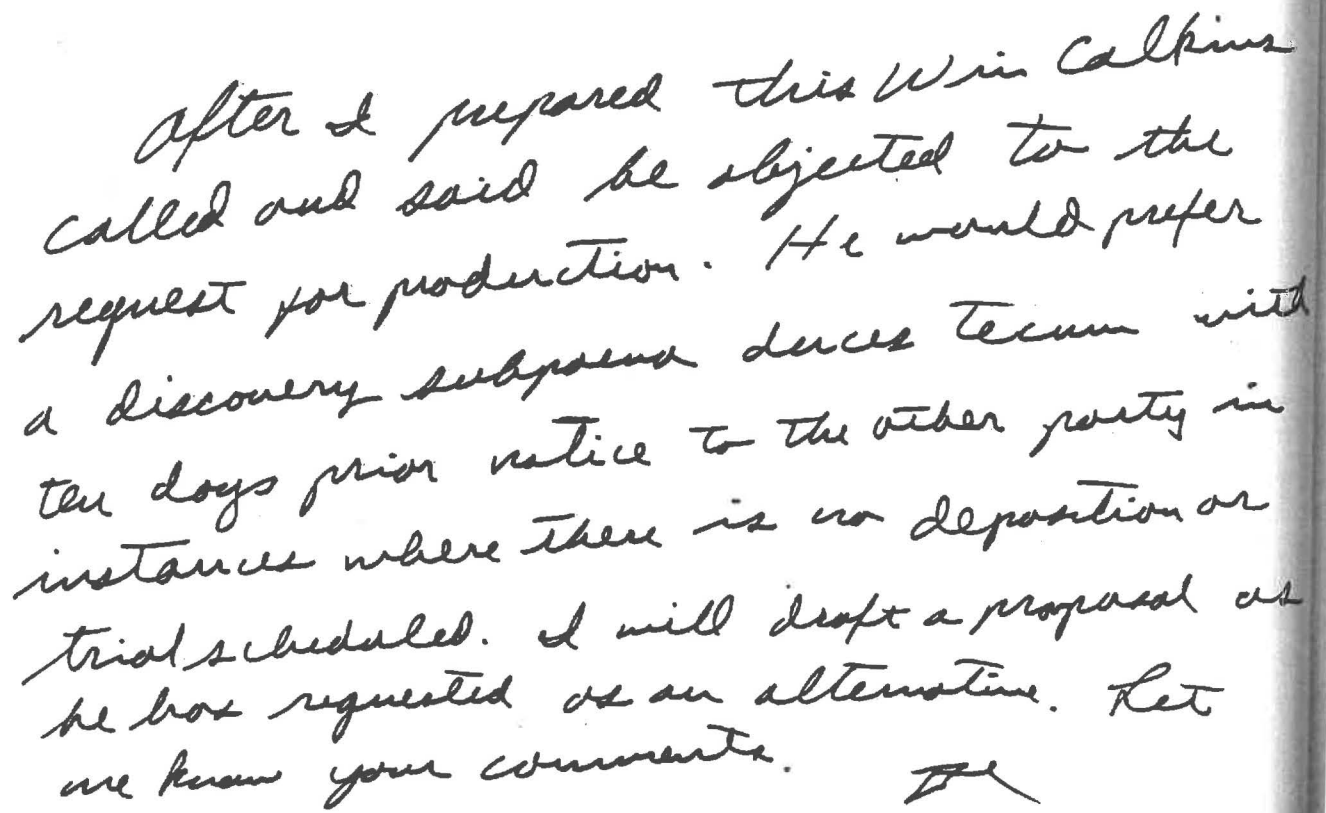 After I prepared this Win Calkins
called and said he objected to the
request for production. He would prefer
a discovery subpoena duces tecum with
ten days prior notice to the other party in
instances where there is no deposition or
trial scheduled. I will draft a proposal as
he has requested as an alternative. Let
me know your comments.